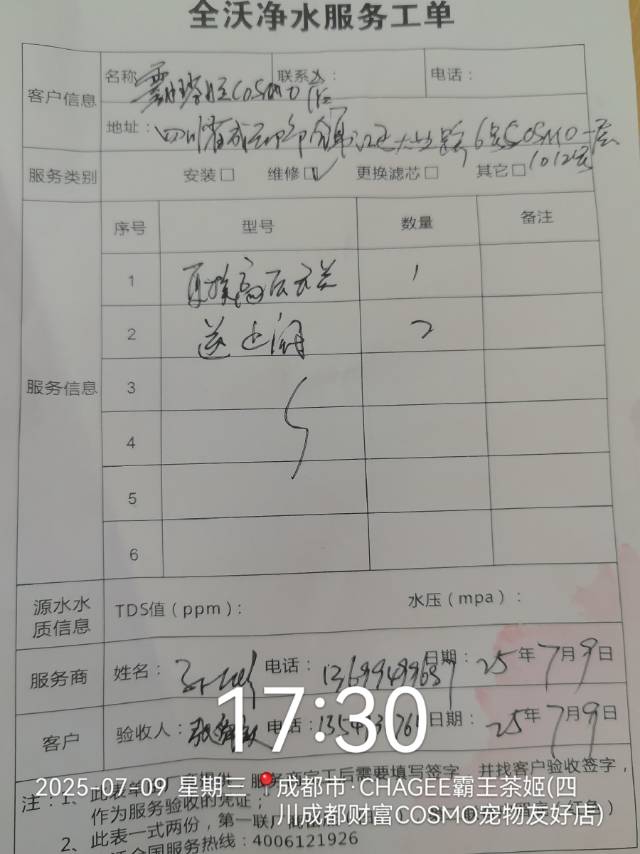 全沃净水服务工单
客户信息
名称 COSMO店
联系人：
电话：
地址：四川省成都市锦江区大业路6号COSMO一层
1012号
服务类别
安装□ 维修☑ 更换滤芯□ 其它□
服务信息
序号 型号 数量 备注
1 高压开关 1
2 逆止阀 2
3
4
5
6
源水水
质信息
TDS值（ppm）： 水压（mpa）：
服务商
姓名： 电话： 日期：25年7月9日
客户
验收人： 电话： 日期：25年7月9日
17:30
2025-07-09 星期三 成都市·CHAGEE霸王茶姬(四
川成都财富COSMO宠物友好店)
注：1、 服务商完工后需要填写签字，并找客户验收签字，
作为服务验收的凭证；
2、此表一式两份，第一联厂
全国服务热线：4006121926